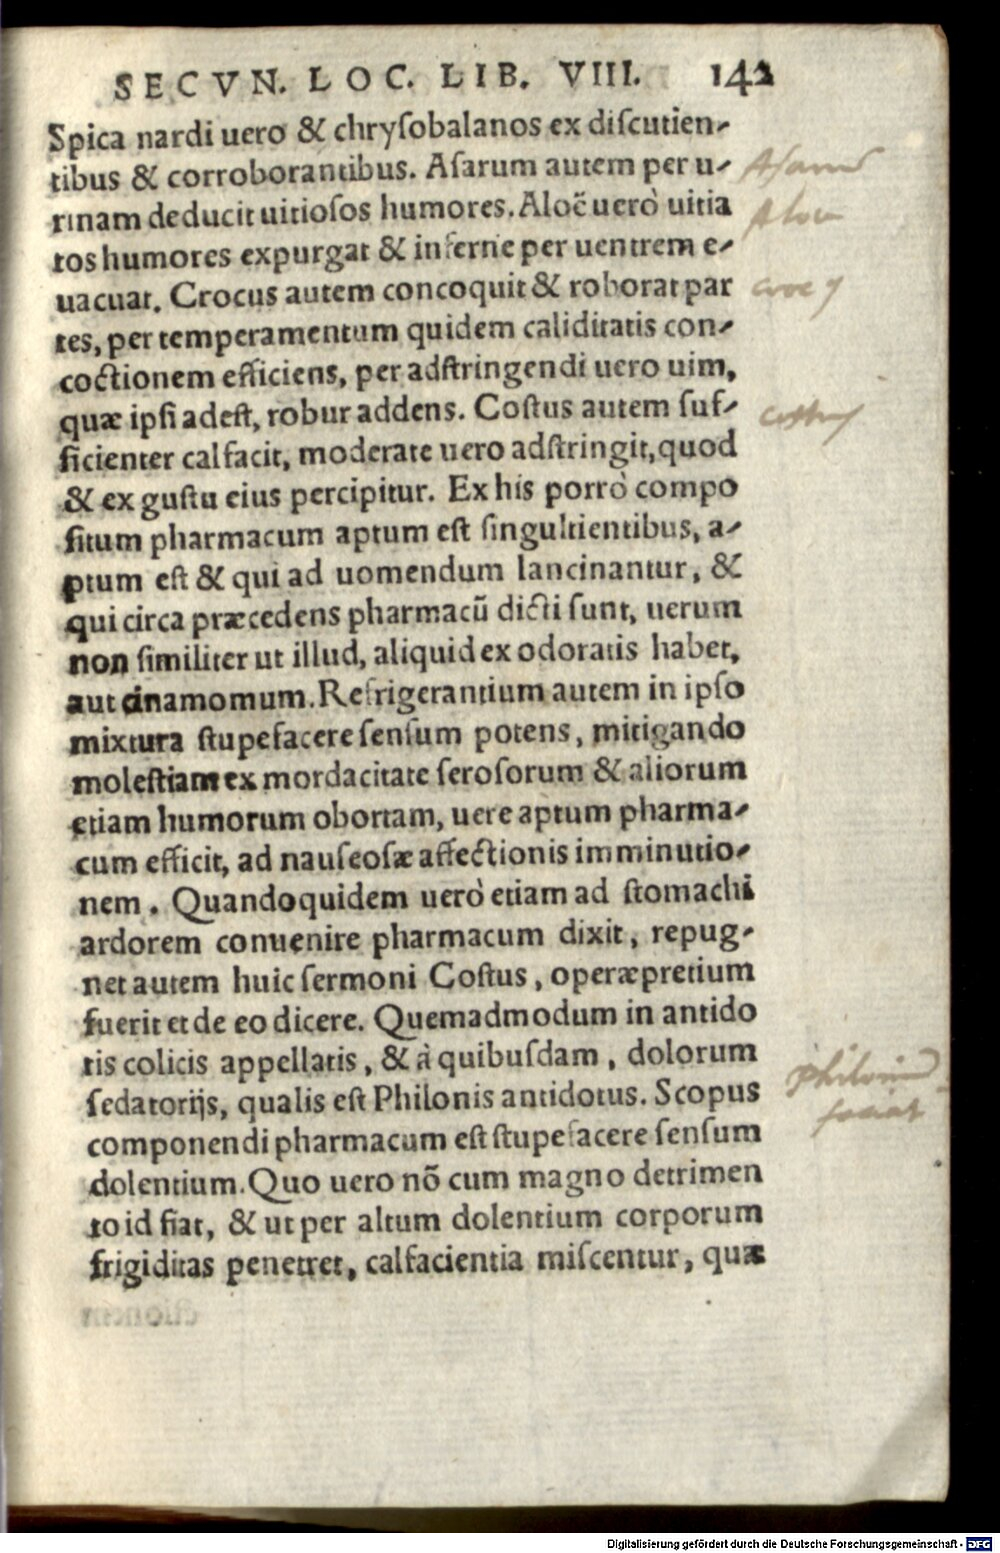 SECVN. LOC. LIB. VIII. 142
Spica nardi uero & chrysobalanos ex discutien-
tibus & corroborantibus. Asarum autem per u-
rinam deducit uitiosos humores. Aloë uerò uitia
tos humores expurgat & inferne per uentrem e-
uacuat. Crocus autem concoquit & roborat par
tes, per temperamentum quidem caliditatis con-
coctionem efficiens, per adstringendi uero uim,
quæ ipsi adest, robur addens. Costus autem suf-
ficienter calfacit, moderate uero adstringit, quod
& ex gustu eius percipitur. Ex his porrò compo
situm pharmacum aptum est singultientibus, a-
ptum est & qui ad uomendum lancinantur, &
qui circa præcedens pharmacũ dicti sunt, uerum
non similiter ut illud, aliquid ex odoratis habet,
aut cinamomum. Refrigerantium autem in ipso
mixtura stupefacere sensum potens, mitigando
molestiam ex mordacitate serosorum & aliorum
etiam humorum obortam, uere aptum pharma-
cum efficit, ad nauseosæ affectionis imminutio-
nem. Quandoquidem uerò etiam ad stomachi
ardorem conuenire pharmacum dixit, repug-
net autem huic sermoni Costus, operæpretium
fuerit et de eo dicere. Quemadmodum in antido
tis colicis appellatis, & à quibusdam, dolorum
sedatorijs, qualis est Philonis antidotus. Scopus
componendi pharmacum est stupefacere sensum
dolentium. Quo uero nõ cum magno detrimen
to id fiat, & ut per altum dolentium corporum
frigiditas penetret, calfacientia miscentur, quæ
Digitalisierung gefördert durch die Deutsche Forschungsgemeinschaft - DFG